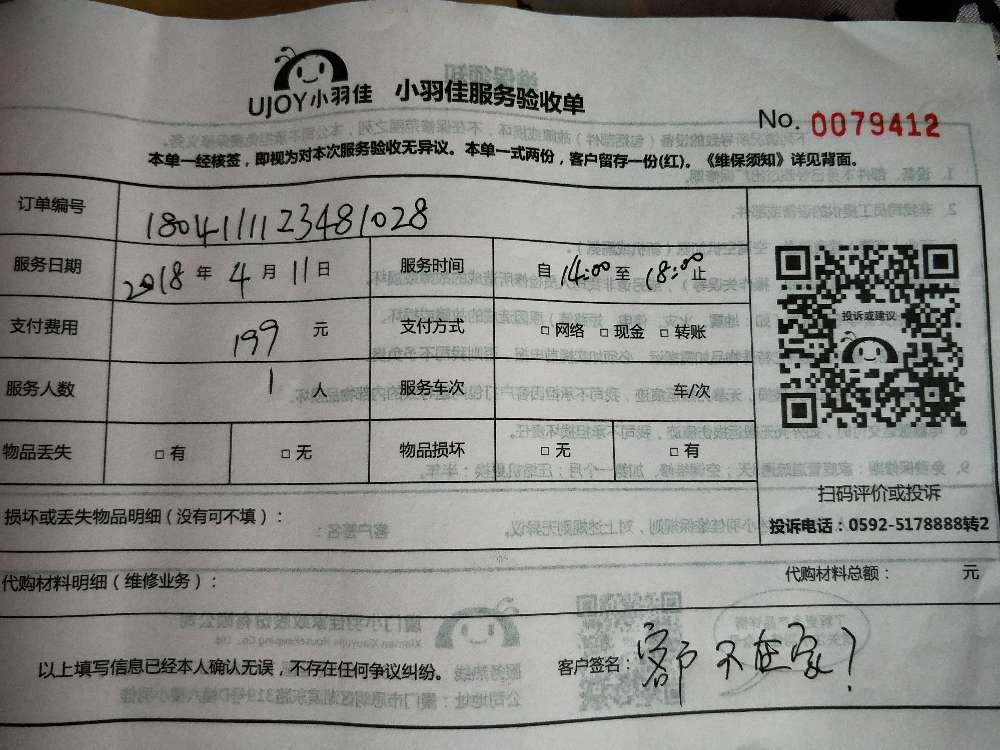 UJOY小羽佳 小羽佳服务验收单
No. 0079412
本单一经核签，即视为对本次服务验收无异议。本单一式两份，客户留存一份(红)。《维保须知》详见背面。
订单编号 1804111123481028
服务日期 2018年4月11日 服务时间 自14:00至18:00止
支付费用 199元 支付方式 □网络 □现金 □转账
服务人数 1人 服务车次 车/次
物品丢失 □有 □无 物品损坏 □无 □有
投诉或建议
扫码评价或投诉
投诉电话：0592-5178888转2
损坏或丢失物品明细（没有可不填）：
代购材料明细（维修业务）： 代购材料总额： 元
以上填写信息已经本人确认无误，不存在任何争议纠纷。 客户签名：客户不在家？